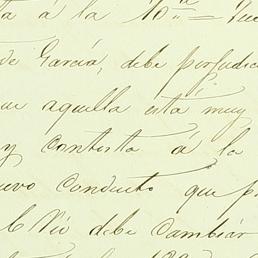 ta á la 10.ª = Que
de García, debe perjudic
que aquella está muy
y contesta á la
uevo conducto que p
lo debe cambiar